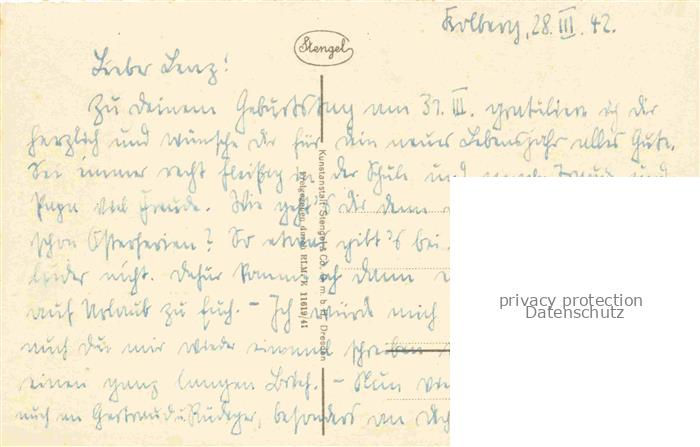 Kolberg, 28. III. 42.
Stengel
Lieber Lenz!
Zu deinem Geburtstag am 31. III. gratuliere ich dir
herzlich und wünsche dir für dein neues Lebensjahr alles Gute.
Sei immer recht fleißig in der Schule und mach und
Papa viel Freude. Wie geht's dir denn
schon Osterferien? So etwas gibt's bei
leider nicht. Dafür komme ich dann
auf Urlaub zu Euch. – Ich würde mich
auch du mir wieder einmal schreiben
einen ganz langen Brief. – Nun
auch an Gertraud u. Rüdiger, besonders an dich
Kunstanstalt Stengel & Co. G.m.b.H., Dresden
Freigegeben durch RLM/K 11619/41
privacy protection
Datenschutz